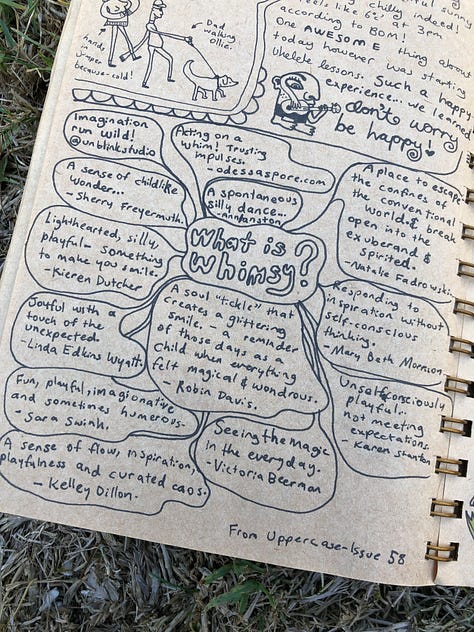 chilly indeed!
feels like 6°c at 3pm
according to BOM!
One AWESOME thing about
today however was starting
ukelele lessons. Such a happy
experience... we learned
don't worry
be happy!
Dad
walking
Ollie.
hands,
jumper
because-cold!
Imagination
run wild!
@unblinkstudio
Acting on a
whim! Trusting
impulses.
-odessaspore.com
A sense of childlike
wonder...
- Sherry Freyermuth.
A spontaneous
silly dance...
-annranston
A place to escape
the confines of
the conventional
world & break
open into the
exuberand &
spirited.
- Natalie Fadrowski.
Lighthearted, silly,
playful- something
to make you smile.
- Kieren Dutcher
What is
Whimsy?
Responding to
inspiration without
self-conscious
thinking.
- Mary Beth Morrison
A soul "tickle" that
creates a glittering
smile. - a reminder
of those days as a
child when everything
felt magical & wondrous.
- Robin Davis.
Joyful with a
touch of the
unexpected.
- Linda Edkins Wyatt.
Fun, playful, imaginative
and sometimes humorous.
- Sara Swink.
Unselfconsciously
playful..
not meeting
expectations.
- Karen Stanton
Seeing the magic
in the everyday.
- Victoria Beerman
A sense of flow, inspiration,
playfulness and curated caos.
- Kelley Dillon.
From Uppercase-Issue 58